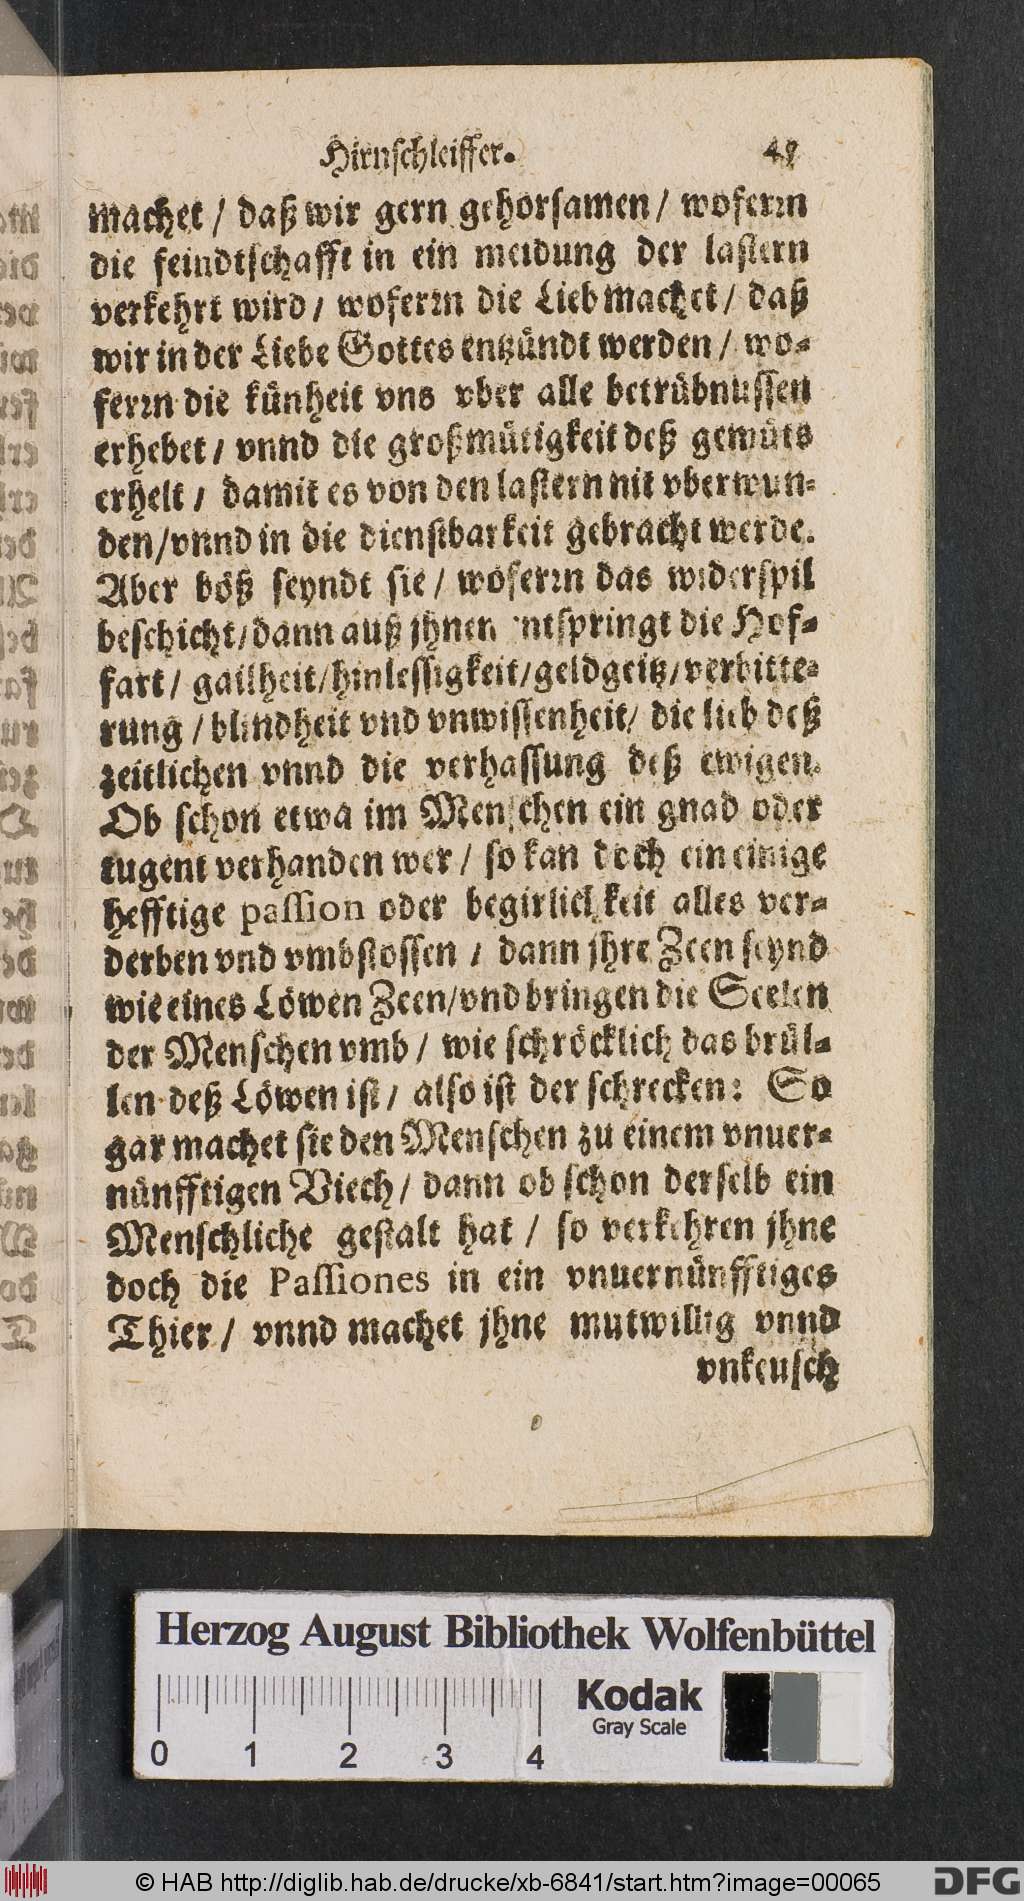 Hirnschleiffer. 49
machet / daß wir gern gehorsamen / woferrn
die feindtschafft in ein meidung der lastern
verkehrt wird / woferrn die Lieb machet / daß
wir in der Liebe Gottes entzündt werden / wo-
ferrn die künheit vns vber alle betrübnussen
erhebet / vnnd die großmütigkeit deß gemüts
erhelt / damit es von den lastern nit vberwun-
den / vnnd in die dienstbarkeit gebracht werde.
Aber böß seyndt sie / woferrn das widerspil
beschicht / dann auß jhnen entspringt die Hof-
fart / gailheit / hinlessigkeit / geldgeitz / verbitte-
rung / blindheit vnd vnwissenheit / die lieb deß
zeitlichen vnnd die verhassung deß ewigen.
Ob schon etwa im Menschen ein gnad oder
tugent verhanden wer / so kan doch ein einige
hefftige passion oder begirlickeit alles ver-
derben vnd vmbstossen / dann jhre Zeen seynd
wie eines Löwen Zeen / vnd bringen die Seelen
der Menschen vmb / wie schröcklich das brül-
len deß Löwen ist / also ist der schrecken: So
gar machet sie den Menschen zu einem vnuer-
nünfftigen Viech / dann ob schon derselb ein
Menschliche gestalt hat / so verkehren jhne
doch die Passiones in ein vnuernünfftiges
Thier / vnnd machet jhne mutwillig vnnd
vnkeusch
Herzog August Bibliothek Wolfenbüttel
Kodak
Gray Scale
0 1 2 3 4
© HAB http://diglib.hab.de/drucke/xb-6841/start.htm?image=00065
DFG